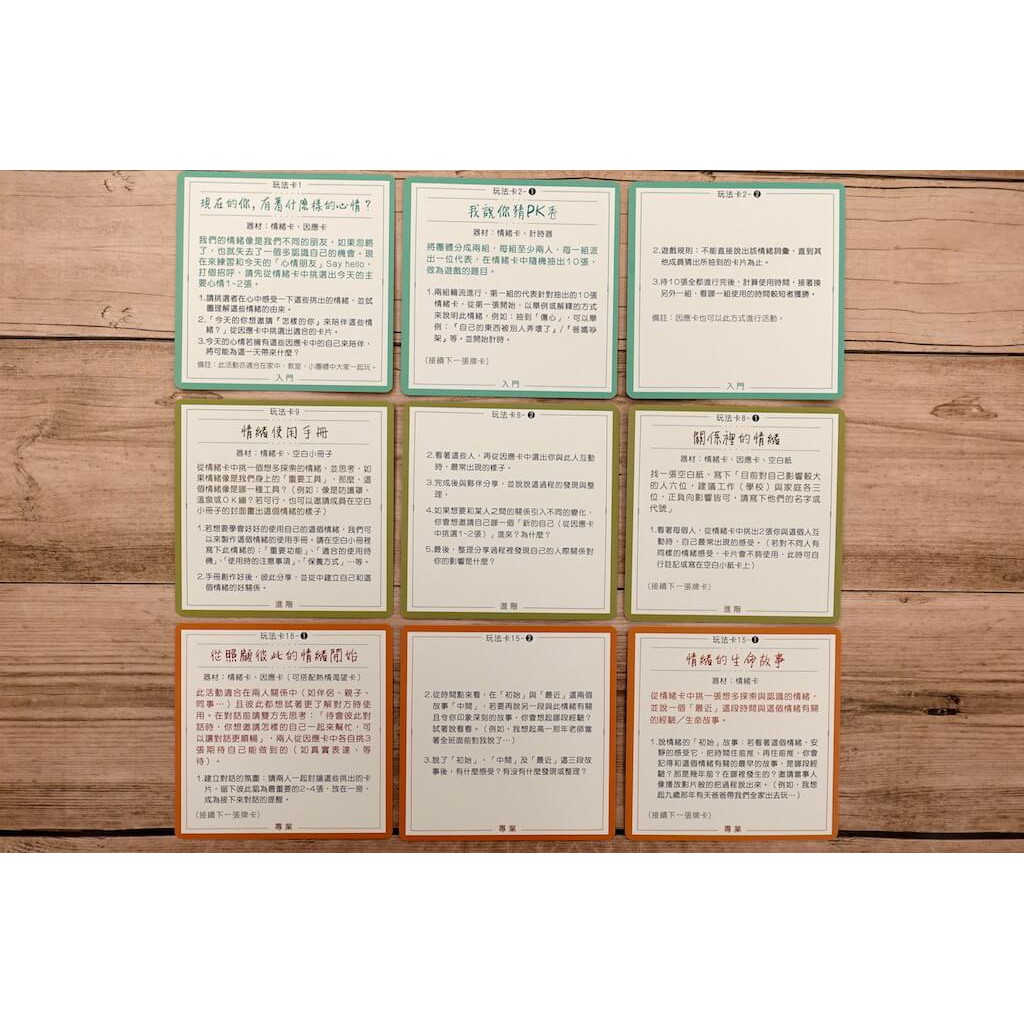 玩法卡1
現在的你,有著什麼樣的心情?
器材:情緒卡、因應卡
我們的情緒像是我們不同的朋友,如果忽略
了,也就失去了一個多認識自己的機會。現
在來練習和今天的「心情朋友」Say hello,
打個招呼,請先從情緒卡中挑選出今天的主
要心情1~2張。
1.請挑選者在心中感受一下這些挑出的情緒,並試
圖理解這些情緒的由來。
2.「今天的你想邀請『怎樣的你』來陪伴這些情
緒?」從因應卡中挑選出適合的卡片。
3.今天的心情若擁有這些因應卡中的自己來陪伴,
將可能為這一天帶來什麼?
備註:此活動亦適合在家中、教室、小團體中大家一起玩。
入門
玩法卡2-❶
我說你猜PK秀
器材:情緒卡、計時器
將團體分成兩組,每組至少兩人,每一組派
出一位代表,在情緒卡中隨機抽出10張,
做為遊戲的題目。
1.兩組輪流進行,第一組的代表針對抽出的10張
情緒卡,從第一張開始,以舉例或解釋的方式
來說明此情緒,例如:抽到「傷心」,可以舉
例:「自己的東西被別人弄壞了」/「爸媽吵
架」等。並開始計時。
(接續下一張牌卡)
入門
玩法卡2-❷
2.遊戲規則:不能直接說出該情緒詞彙,直到其
他成員猜出所抽到的卡片為止。
3.待10張全都進行完後,計算使用時間,接著換
另外一組,看哪一組使用的時間較短者獲勝。
備註:因應卡也可以此方式進行活動。
入門
玩法卡9
情緒使用手冊
器材:情緒卡、空白小冊子
從情緒卡中挑一個想多探索的情緒,並思考,如
果情緒像是我們身上的「重要工具」,那麼,這
個情緒像是哪一種工具?(例如:像是防護罩、
溫泉或OK繃?若可行,也可以邀請成員在空白
小冊子的封面畫出這個情緒的樣子)
1.若想要學會好好的使用自己的這個情緒,我們可
以來製作這個情緒的使用手冊。請在空白小冊裡
寫下此情緒的:「重要功能」、「適合的使用時
機」、「使用時的注意事項」、「保養方式」…等。
2.手冊創作好後,彼此分享,並從中建立自己和這
個情緒的好關係。
進階
玩法卡8-❷
2.看著這些人,再從因應卡中選出你與此人互動
時,最常出現的樣子。
3.完成後與夥伴分享,並說說這過程的發現與整
理。
4.如果想要和某人之間的關係引入不同的變化,
你會想邀請自己哪一個「新的自己(從因應卡
中挑選1~2張)」進來?為什麼?
5.最後,整理分享過程裡發現自己的人際關係對
你的影響是什麼?
進階
玩法卡8-❶
關係裡的情緒
器材:情緒卡、因應卡、空白紙
找一張空白紙,寫下「目前對自己影響較大
的人六位,建議工作(學校)與家庭各三
位,正負向影響皆可,請寫下他們的名字或
代號」
1.看著每個人,從情緒卡中挑出2張你與這個人互
動時,自己最常出現的感受。(若對不同人有
同樣的情緒感受,卡片會不夠使用,此時可自
行註記或寫在空白小紙卡上)
(接續下一張牌卡)
進階
玩法卡16-❶
從照顧彼此的情緒開始
器材:情緒卡、因應卡(可搭配熱情渴望卡)
此活動適合在兩人關係中(如伴侶、親子、
同事…)且彼此都想試著更了解對方時使
用。在對話前請雙方先思考:「待會彼此對
話時,你想邀請怎樣的自己一起來幫忙,可
以讓對話更順暢」,兩人從因應卡中各自挑3
張期待自己能做到的(如真實表達、等
待)。
1.建立對話的氛圍:請兩人一起討論這些挑出的卡
片,留下彼此認為最重要的2~4張,放在一旁,
成為接下來對話的提醒。
(接續下一張牌卡)
專業
玩法卡15-❷
2.從時間點來看,在「初始」與「最近」這兩個
故事「中間」,若要再說另一段與此情緒有關
且令你印象深刻的故事,你會想起哪段經驗?
試著說看看。(例如,我想起高一那年老師當
著全班面前對我說了…)
3.說了「初始」、「中間」及「最近」這三段故
事後,有什麼感受?有沒有什麼發現或整理?
專業
玩法卡15-❶
情緒的生命故事
器材:情緒卡
從情緒卡中挑一張想多探索與認識的情緒,
並說一個「最近」這段時間與這個情緒有關
的經驗/生命故事。
1.說情緒的「初始」故事:若看著這個情緒,安
靜的感受它,把時間往前推、再往前推,你會
記得和這個情緒有關的最早的故事,是哪段經
驗?那是幾年前?在哪裡發生的?邀請當事人
像播放影片般的把過程說出來。(例如,我想
起九歲那年有天爸爸帶我們全家出去玩…)
(接續下一張牌卡)
專業